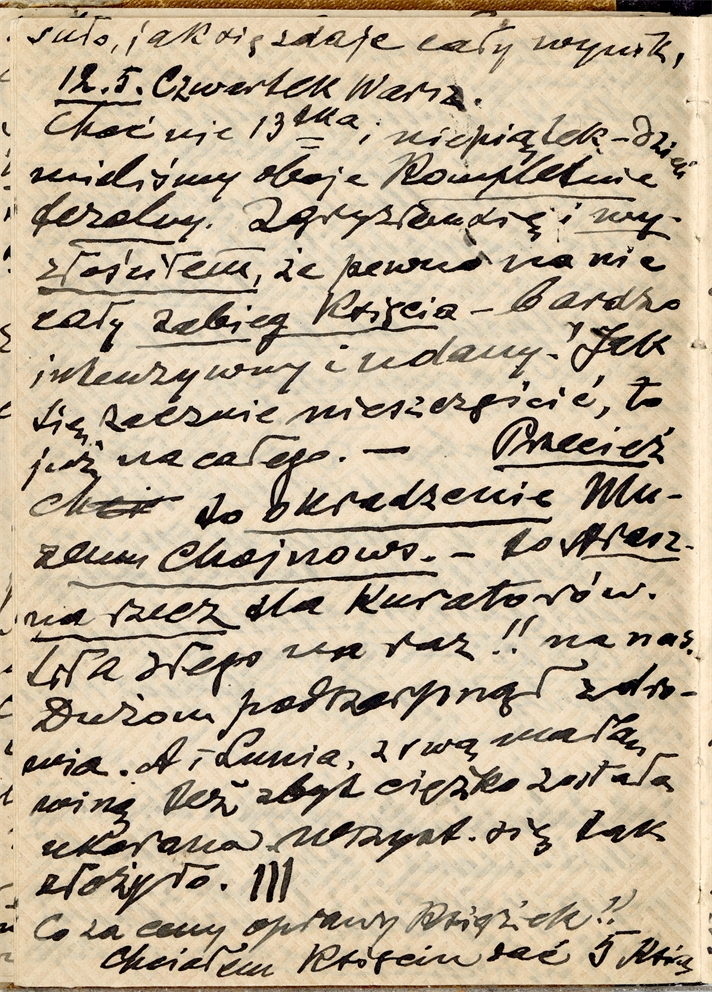 suło, jak się zdaje cały wynik,
12.5. Czwartek Warsz.
Choć nie 13tka i niepiątek – dzień
mieliśmy oboje kompletnie
feralny. Zgryziem się i wy-
złościłem, że pewno na nic
cały zabieg Księcia – bardzo
intenzywny i udany! Jak
się zacznie nieszczęścić, to
już na całego. — Przecież
to okradzenie Mu-
zeum Chojnows. – to strasz-
na rzecz dla Kuratorów.
Siła złego na raz!! na nas.
Dużom podszarpnął zdro-
wia. A i Lunia, z swą małą
winą też zbyt ciężko została
ukarana. wszyst. się tak
złożyło. !!!
Co za ceny oprawy Książek!!
Chciałem Księciu dać 5 Ksią